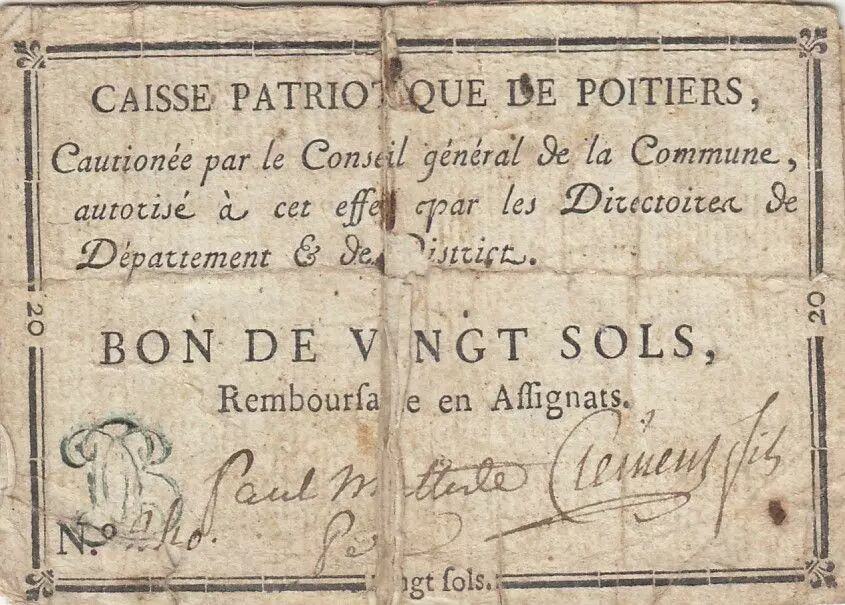 CAISSE PATRIOTIQUE DE POITIERS,
Cautionée par le Conseil général de la Commune,
autorisé à cet effet par les Directoires de
Département & de District.
20
20
BON DE VINGT SOLS,
Remboursable en Assignats.
Paul Clément fils
N.o
ngt sols.